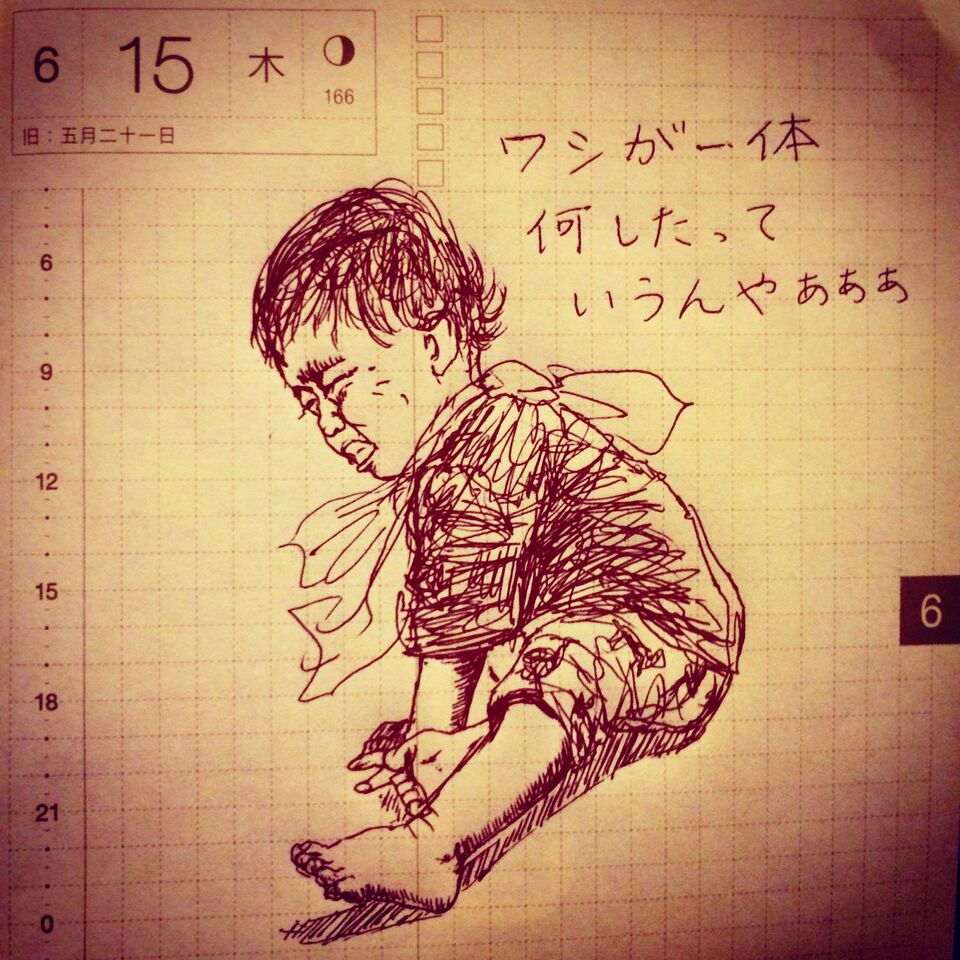 6 15 木
166
旧：五月二十一日
ワシが一体
何したって
いうんやぁぁぁ
6
9
12
15
18
21
0
6